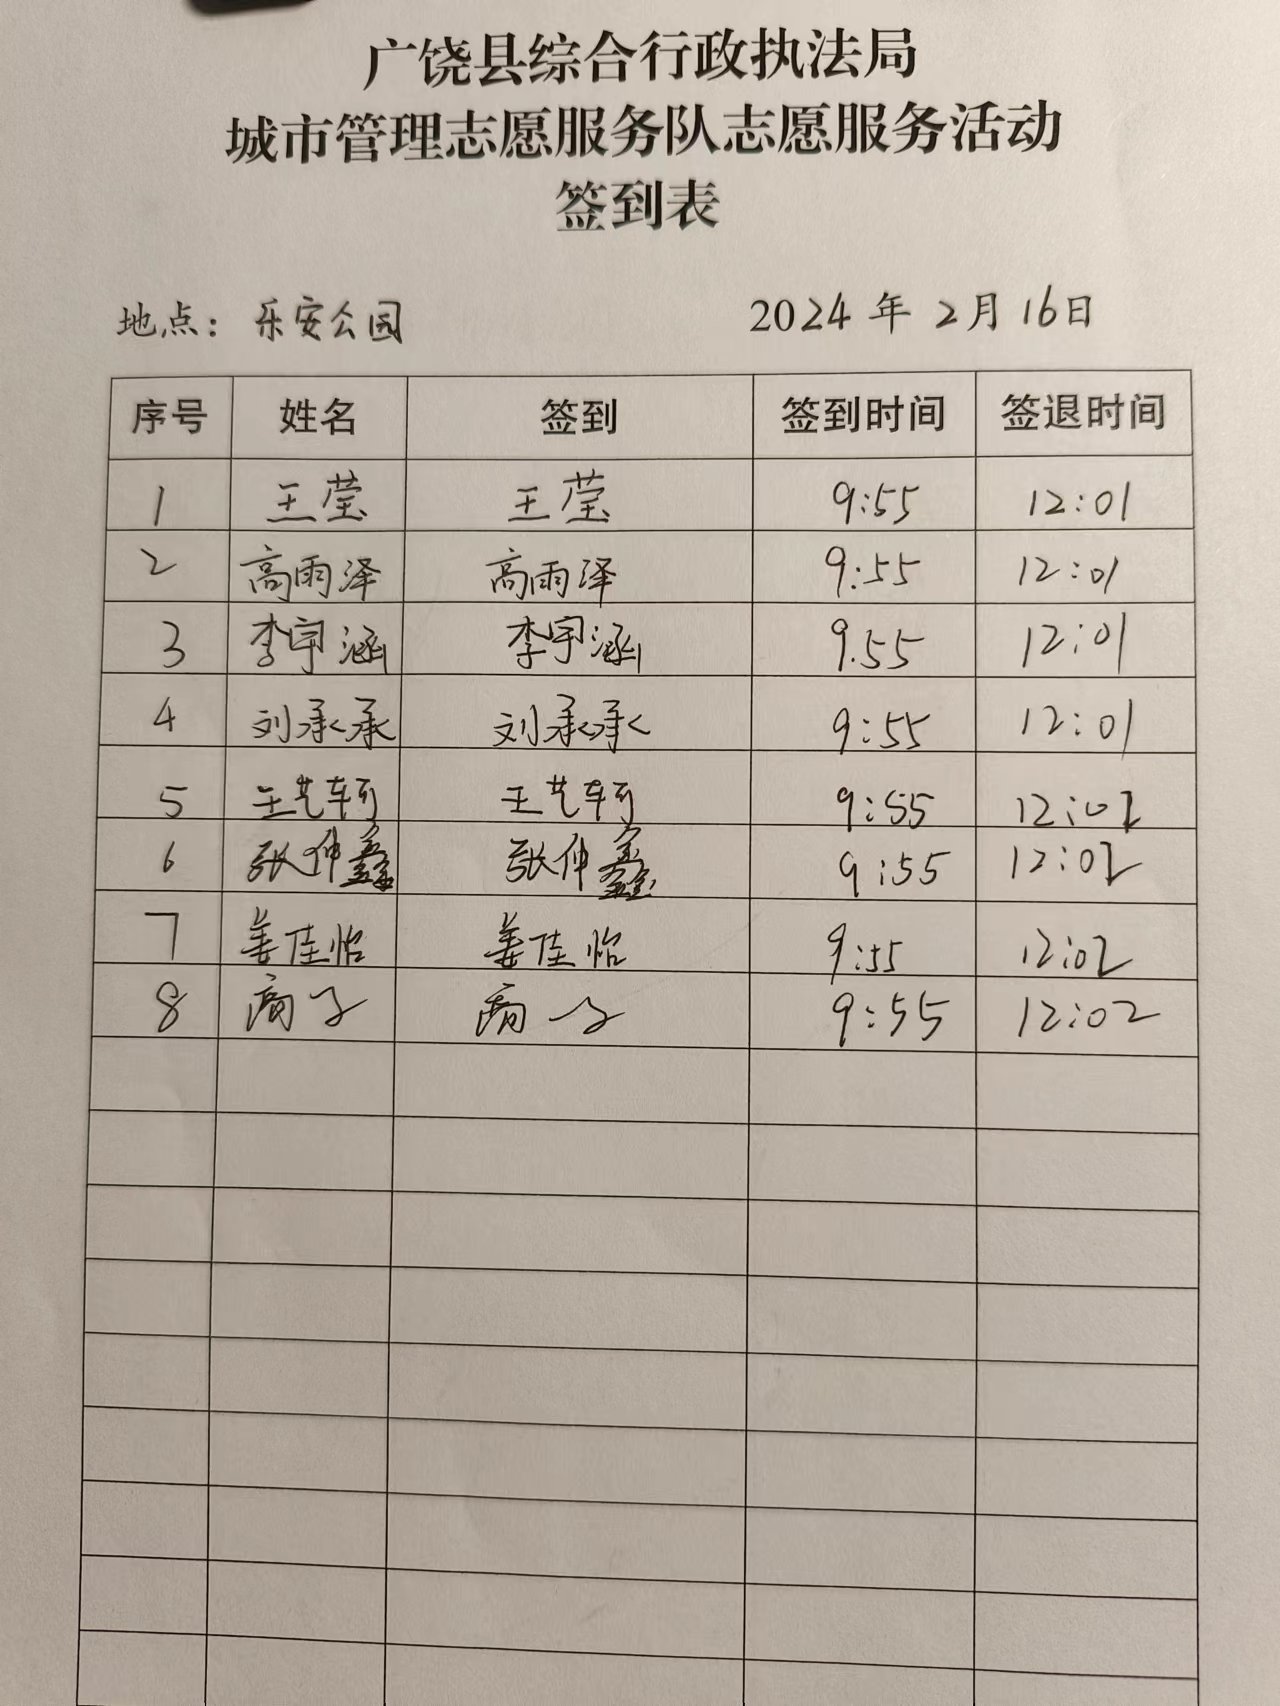 广饶县综合行政执法局
城市管理志愿服务队志愿服务活动
签到表
地点：乐安公园 2024年2月16日
序号 姓名 签到 签到时间 签退时间
1 王莹 王莹 9:55 12:01
2 高雨泽 高雨泽 9:55 12:01
3 李宇涵 李宇涵 9.55 12:01
4 刘承承 刘承承 9:55 12:01
5 王艺轲 王艺轲 9:55 12:02
6 张仲鑫 张仲鑫 9:55 12:02
7 姜佳怡 姜佳怡 9:55 12:02
8 9:55 12:02